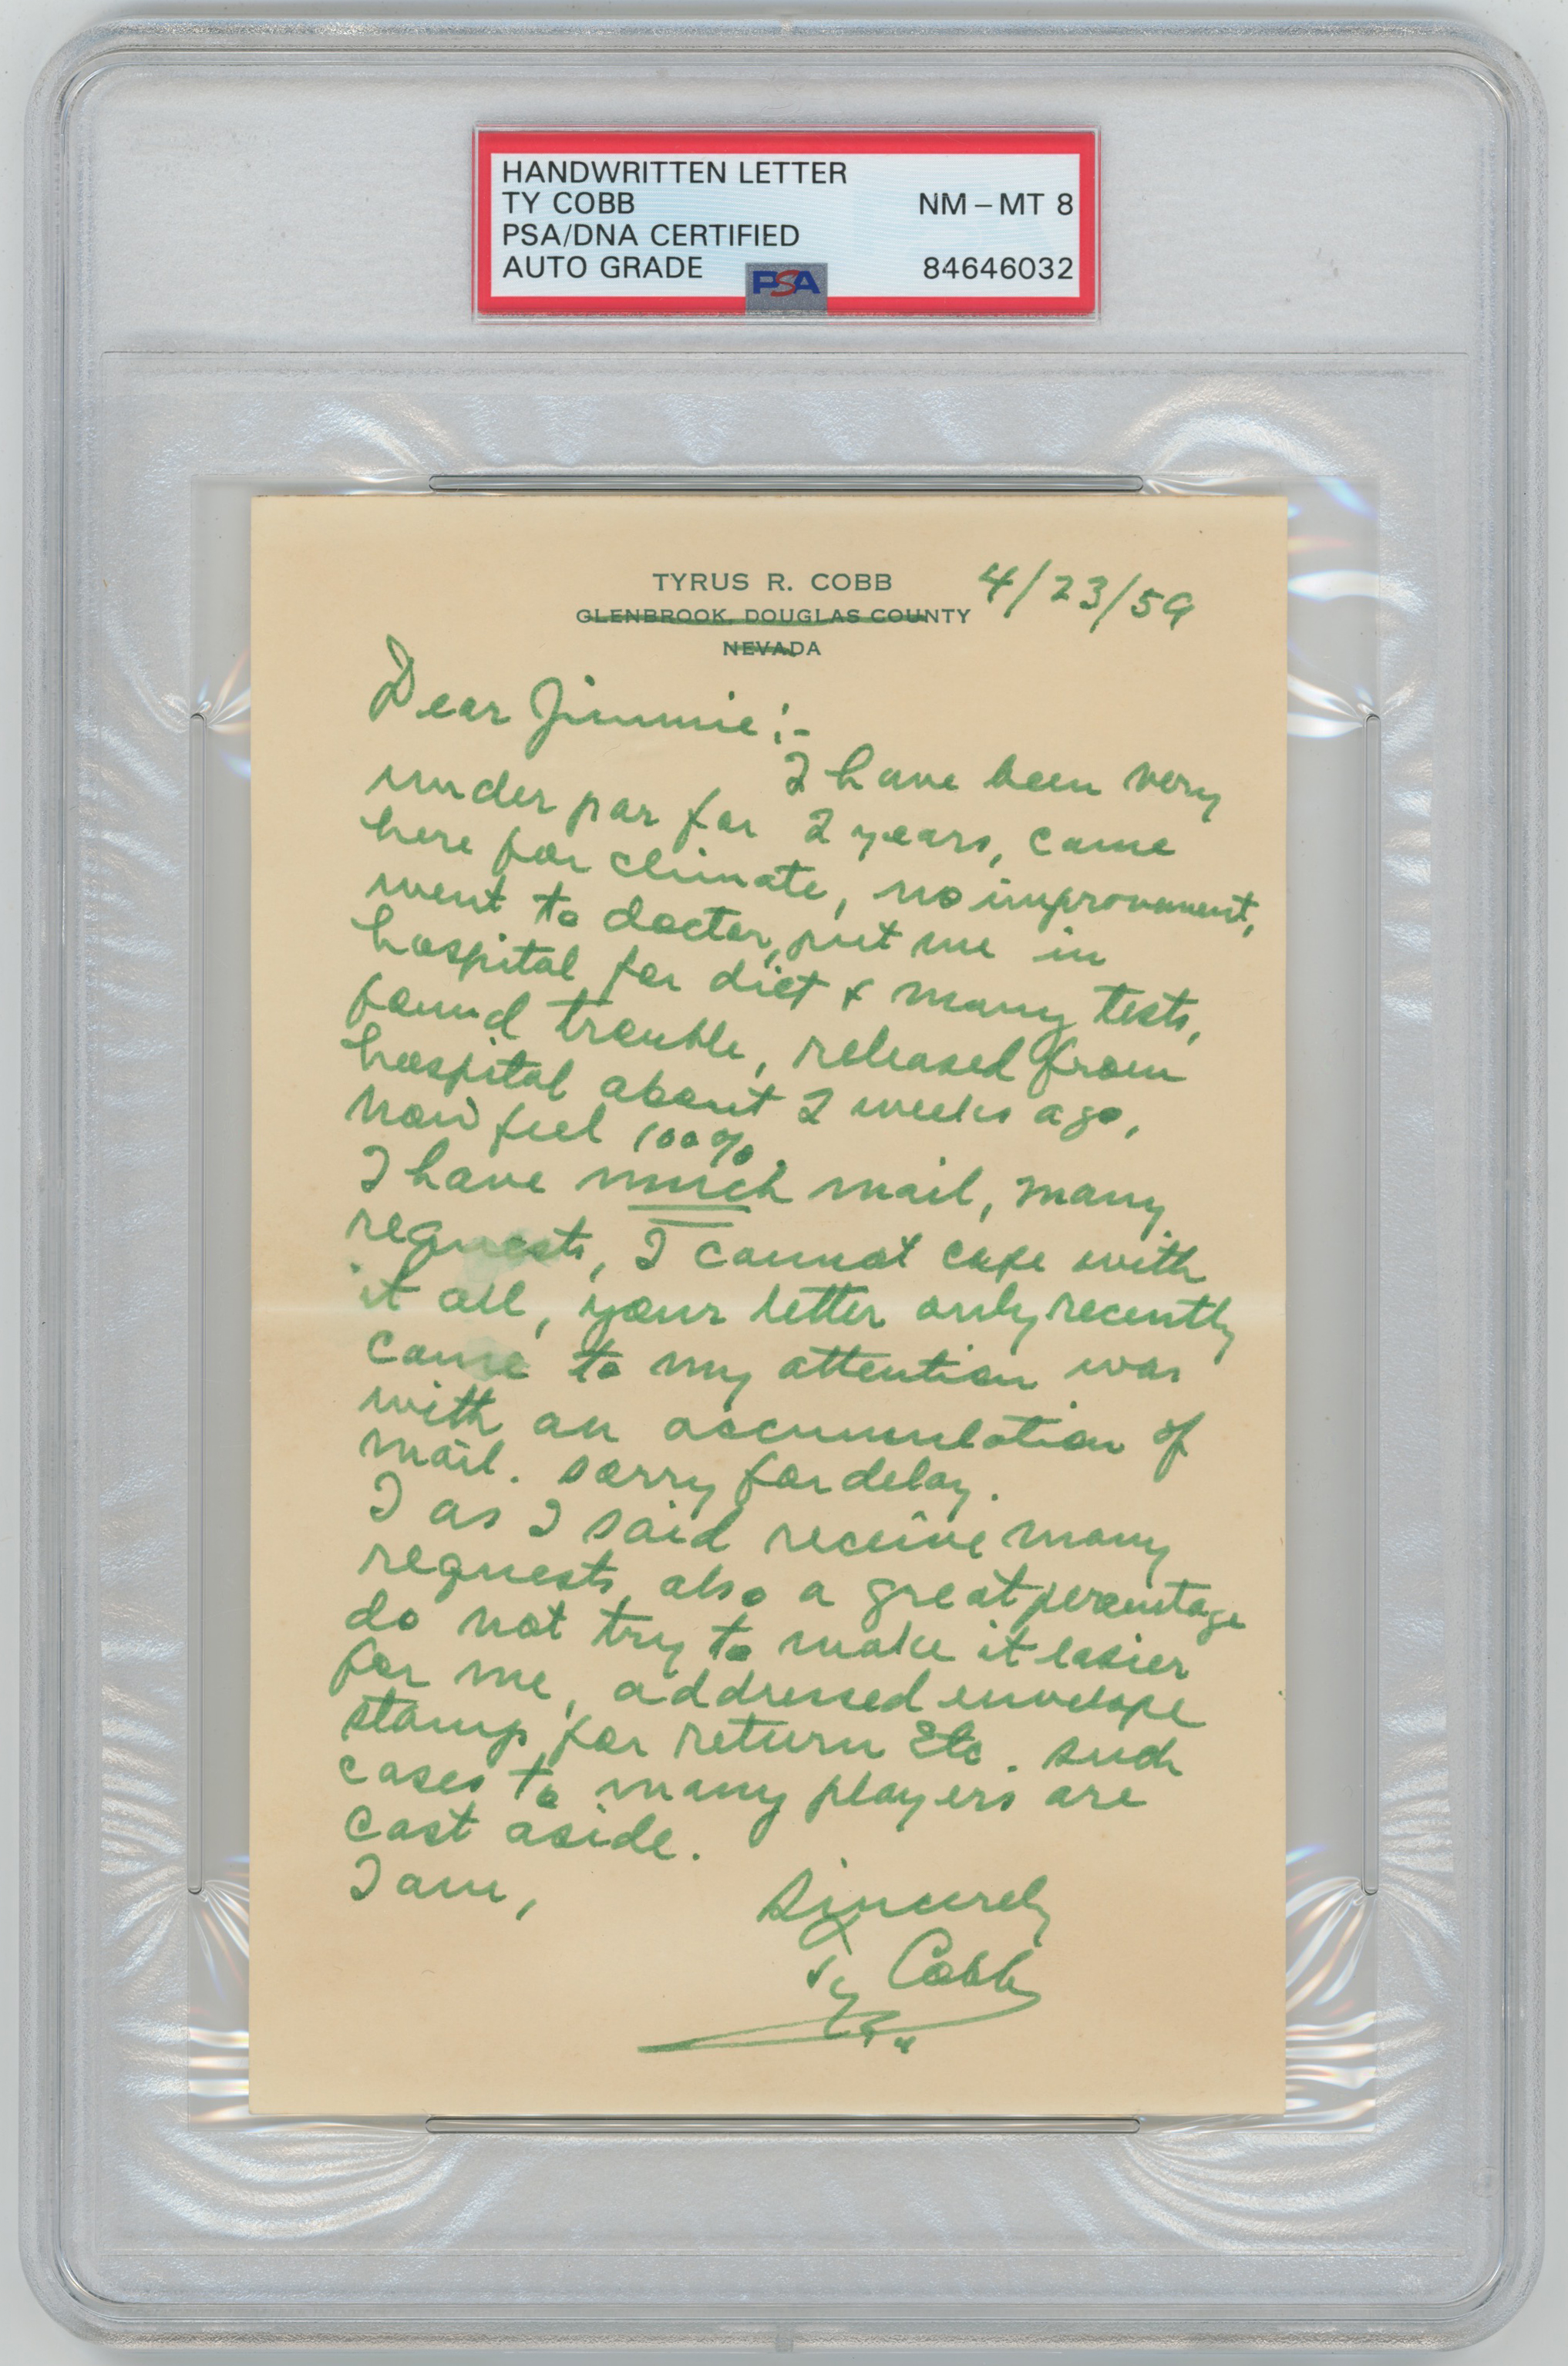 HANDWRITTEN LETTER
TY COBB NM-MT 8
PSA/DNA CERTIFIED
AUTO GRADE 84646032
PSA
TYRUS R. COBB
GLENBROOK, DOUGLAS COUNTY
NEVADA
4/23/59
Dear Jimmie:-
I have been very
under par for 2 years, came
here for climate, no improvement,
went to doctor, put me in
hospital for diet & many tests,
found trouble, released from
hospital about 2 weeks ago,
now feel 100%.
I have much mail, many
requests, I cannot cope with
it all, your letter only recently
came to my attention was
with an accumulation of
mail. sorry for delay.
I as I said receive many
requests, also a great percentage
do not try to make it easier
for me, addressed envelope
stamp for return Etc. such
cases to many players are
cast aside.
I am,
Sincerely
Ty Cobb